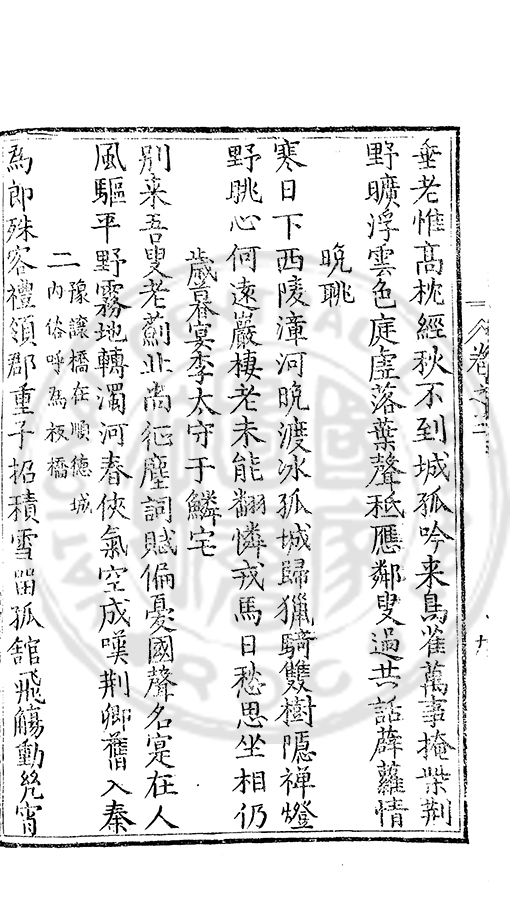 垂老惟高枕經秋不到城孤吟来鳥雀萬事掩柴荆
野曠浮雲色庭虚落葉聲秪應鄰叟過共話薜蘿情
晚眺
寒日下西陵漳河晚渡冰孤城歸獵騎雙樹隠禅燈
野眺心何遠巖棲老未能翻憐戎馬日愁思坐相仍
歲暮宴李太守于鱗宅
别来吾叟老薊北尚征塵詞賦偏憂國聲名寔在人
風驅平野霧地轉濁河春俠氣空成嘆荆卿舊入秦
二
豫讓橋在順德城
内俗呼為板橋
為郎殊客禮領郡重子招積雪留孤舘飛觴動
宵